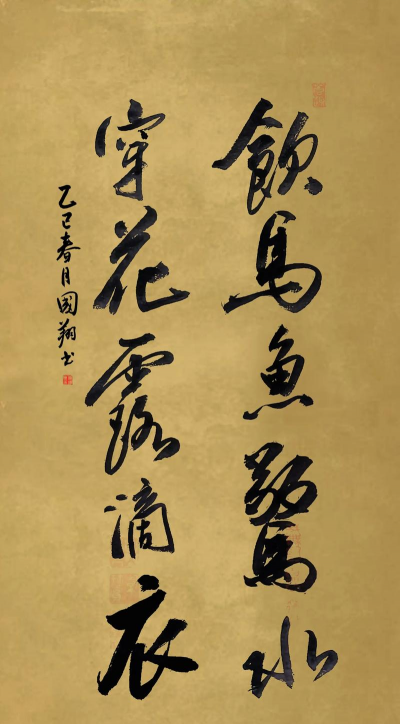 飲馬魚驚水
穿花露滴衣
乙巳春月國翔书